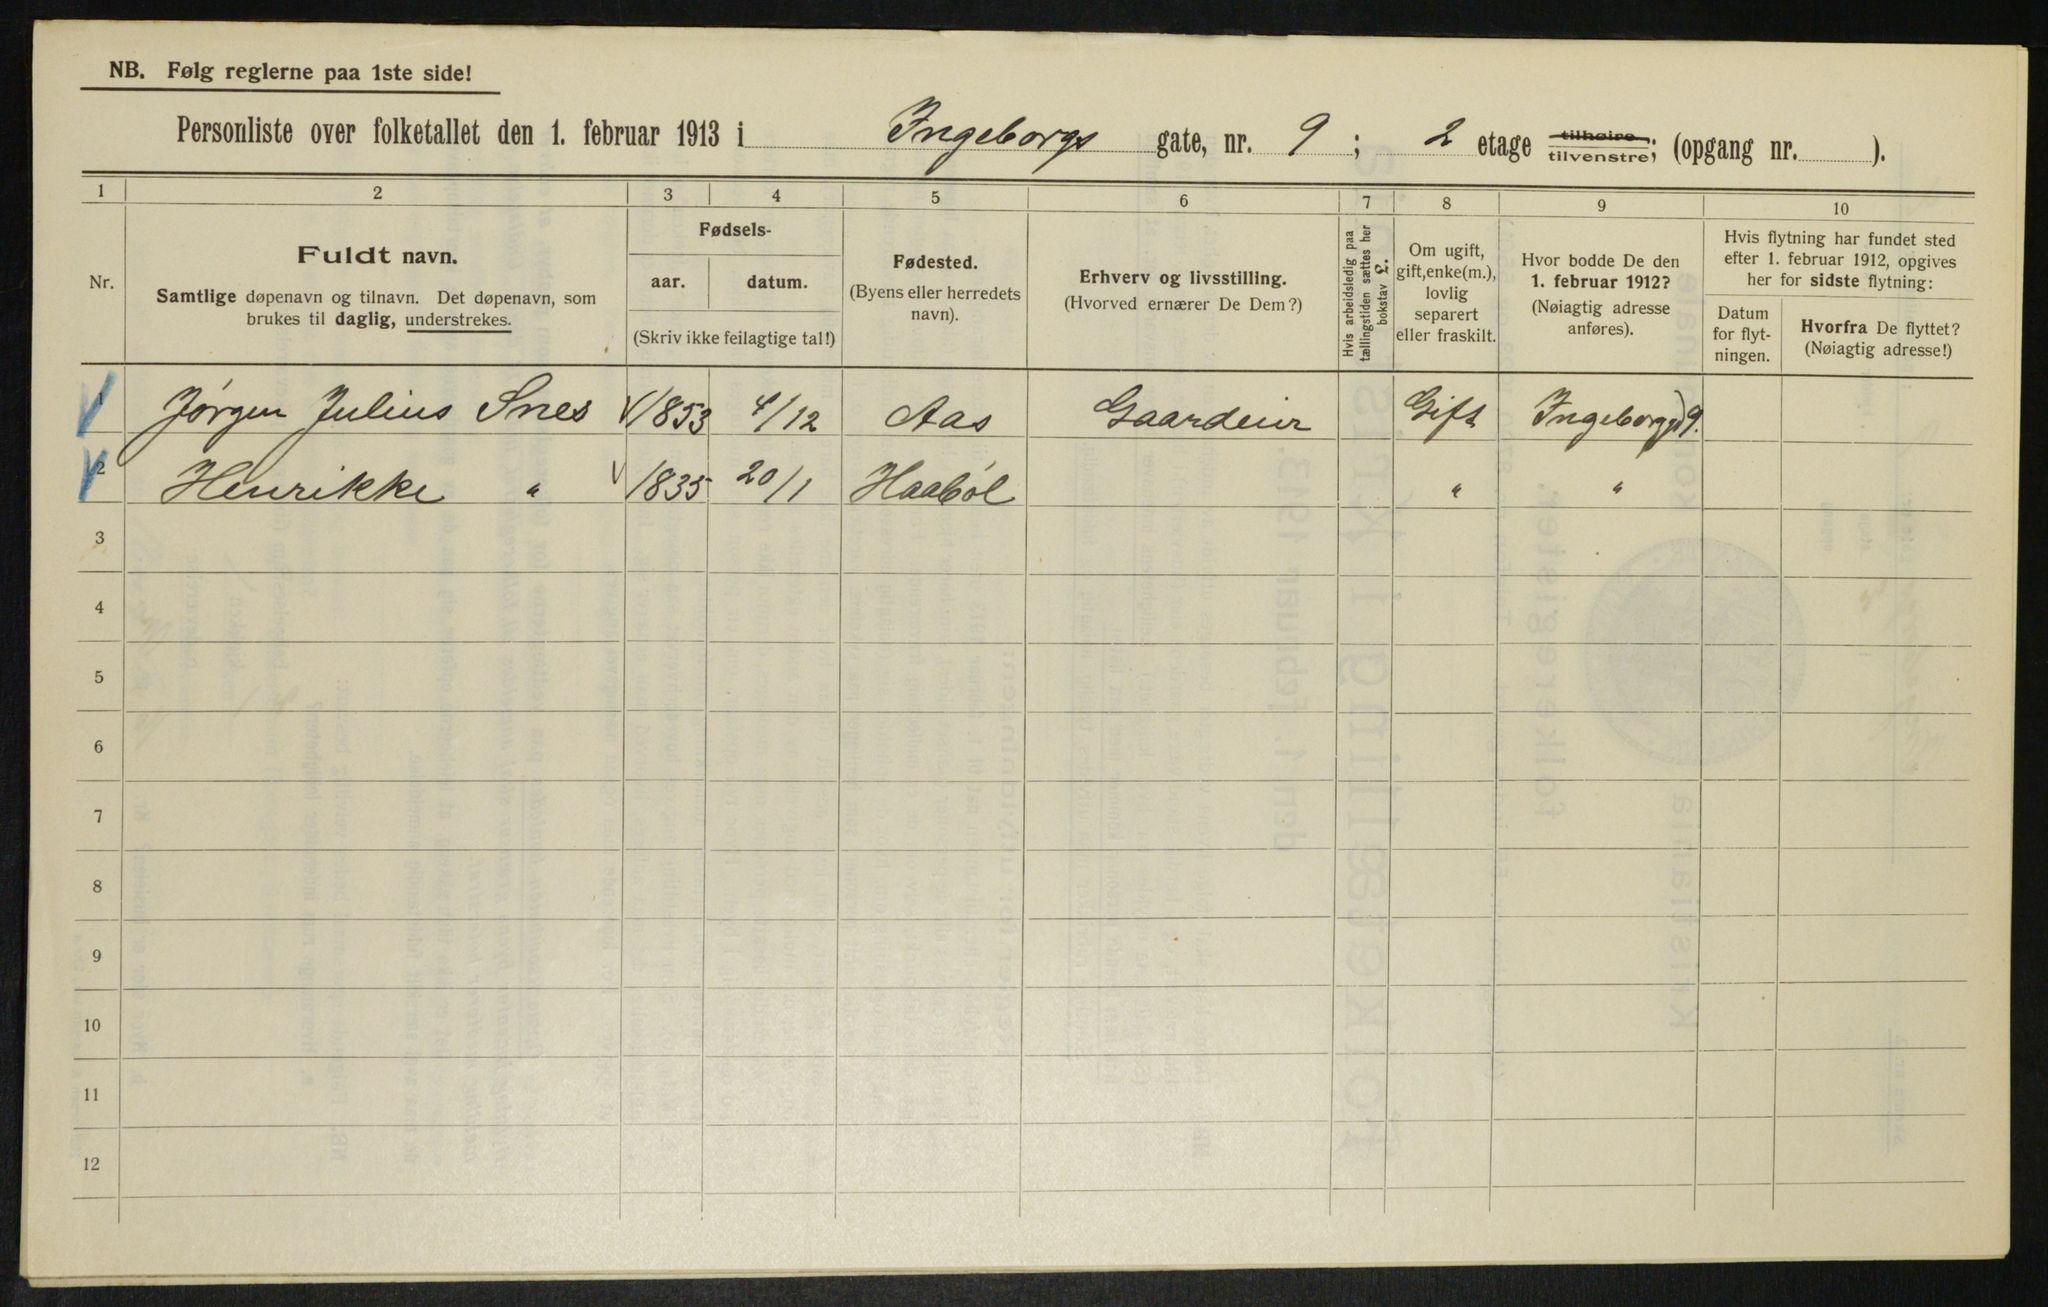 NB. Følg reglerne paa 1ste side!
Personliste over folketallet den 1. februar 1913 i Ingeborgs gate, nr. 9; 2 etage tilhøire tilvenstre; (opgang nr. ).
1 2 3 4 5 6 7 8 9 10
Nr.
Fuldt navn.
Samtlige døpenavn og tilnavn. Det døpenavn, som
brukes til daglig, understrekes.
Fødsels-
aar. datum.
(Skriv ikke feilagtige tal!)
Fødested.
(Byens eller herredets
navn).
Erhverv og livsstilling.
(Hvorved ernærer De Dem?)
Hvis arbeidsledig paa
tællingstiden sættes her
bokstav £.
Om ugift,
gift, enke(m.),
lovlig
separert
eller fraskilt.
Hvor bodde De den
1. februar 1912?
(Nøiagtig adresse
anføres).
Hvis flytning har fundet sted
efter 1. februar 1912, opgives
her for sidste flytning:
Datum
for flyt-
ningen.
Hvorfra De flyttet?
(Nøiagtig adresse!)
1 Jørgen Julius Snes 1853 4/12 Aas Gaardeier Gift Ingeborgg 9.
2 Henrikke " 1835 20/1 Haabøl " "
3
4
5
6
7
8
9
10
11
12